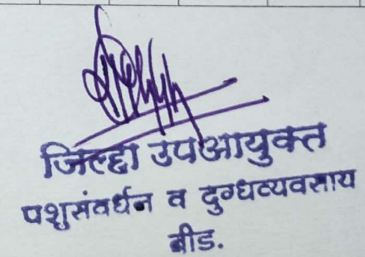 जिल्हा उपआयुक्त
पशुसंवर्धन व दुग्धव्यवसाय
बीड.